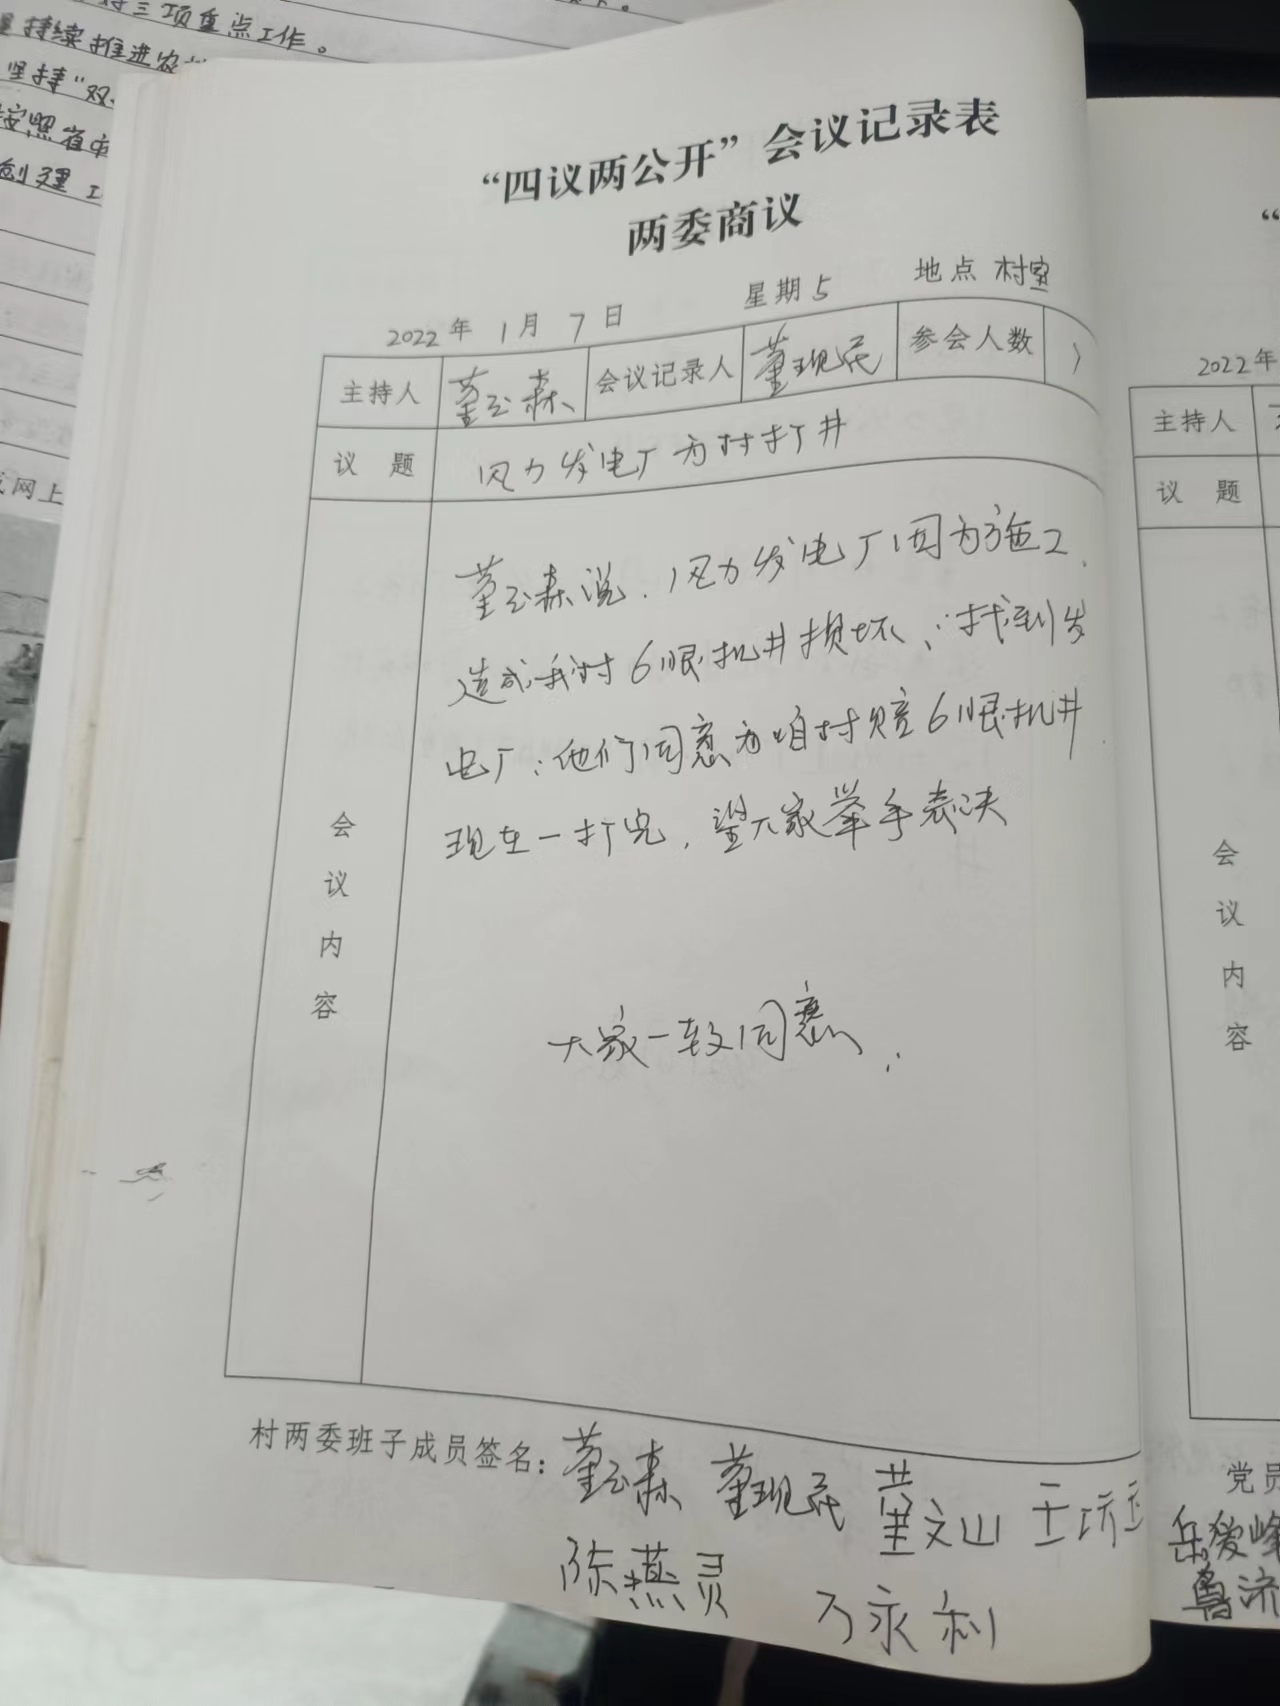 三项重点工作。
持续推进农
坚持“双
按照省市
创建工
网上
“四议两公开”会议记录表
两委商议
2022年 1月 7日 星期5 地点 村室
主持人 董玉森 会议记录人 董现民 参会人数
议 题 风力发电厂为村打井
会议内容
董玉森说.风力发电厂因为施工.
造成我村6眼机井损坏,∵找到发
电厂:他们同意为咱村赔6眼机井
现在一打完,望大家举手表决
大家一致同意.
村两委班子成员签名:董玉森 董现民 董文山 王巧玉
陈燕灵 万永利
“
2022年
主持人
议 题
会议内容
党员
岳爱峰
鲁济